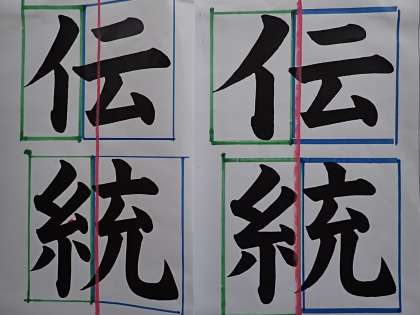 伝 伝
統 統